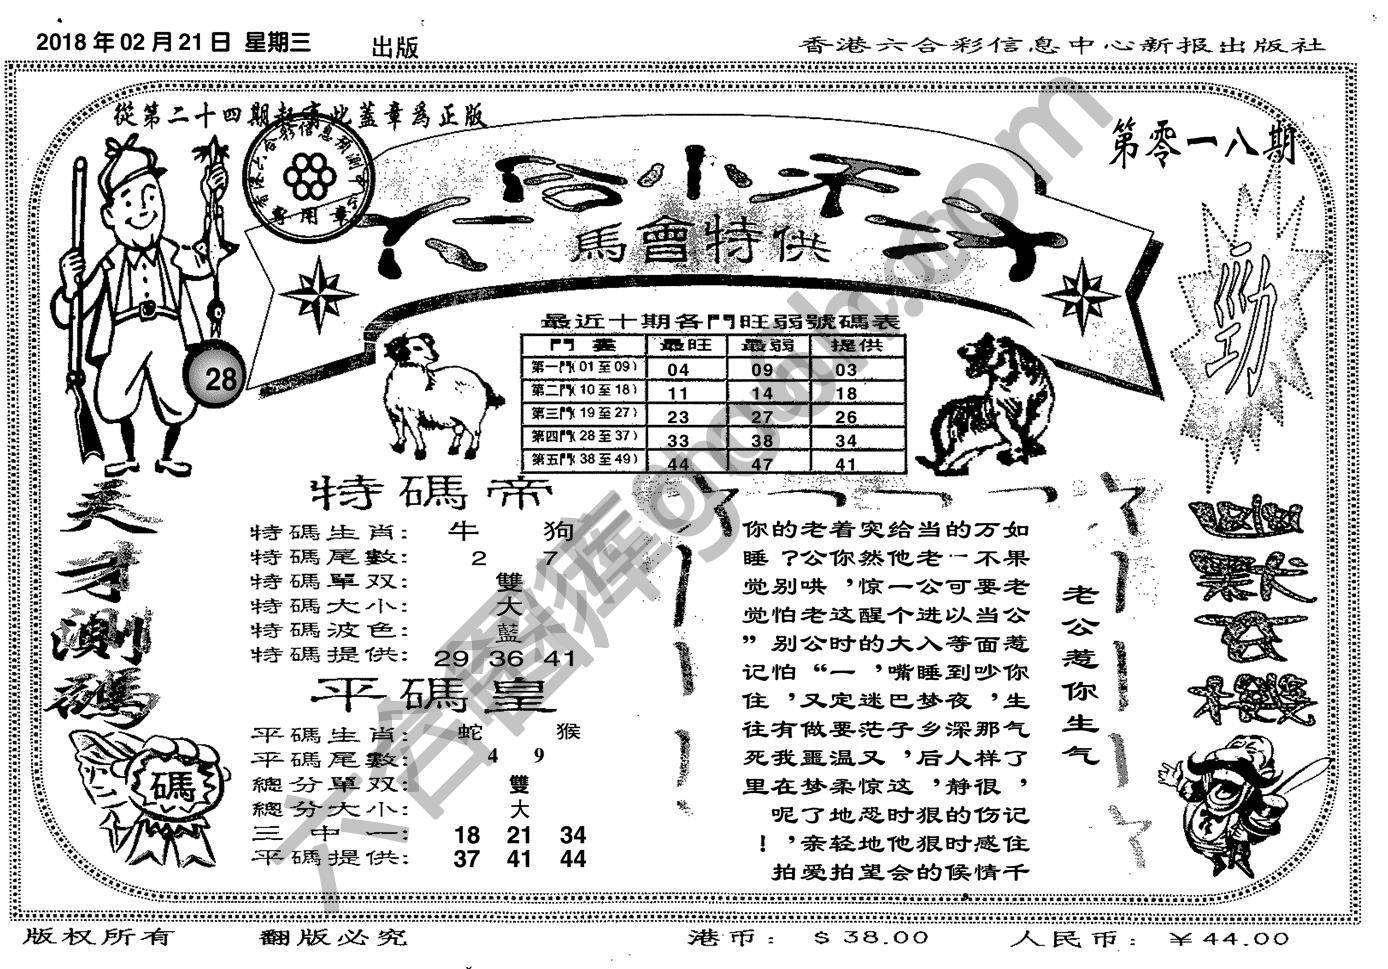 2018 年 02 月 21 日 星期三
出版
香港六合彩信息中心新报出版社
從第二十四期起蓋此蓋章爲正版
第零一八期
專用章
六合小子
馬會特供
勁
28
最近十期各門旺弱號碼表
門書 最旺 最弱 提供
第一門(01至09) 04 09 03
第二門(10至18) 11 14 18
第三門(19至27) 23 27 26
第四門(28至37) 33 38 34
第五門(38至49) 44 47 41
天才測碼
碼
特碼帝
特碼生肖: 牛 狗
特碼尾數: 2 7
特碼單双: 雙
特碼大小: 大
特碼波色: 藍
特碼提供: 29 36 41
平碼皇
平碼生肖: 蛇 猴
平碼尾數: 4 9
總分單双: 雙
總分大小: 大
三中一: 18 21 34
平碼提供: 37 41 44
幽默玄機
老公惹你生气
如果老公惹你生气了，记住千
万不要当面吵，那样很伤感情
的一可以等到夜深人静的时候，
当老公进入梦乡后，狠狠的
给他一个大嘴巴子，这时他会
突然惊醒的，迷茫又惊恐地望
着你，这时一定要温柔地轻拍
老公哄老公“又做噩梦了，亲爱
的？别怕别怕，有我在呢！拍
你睡觉觉”记住往死里
版权所有 翻版必究 港币： $ 38.00 人民币：￥44.00
六合图库